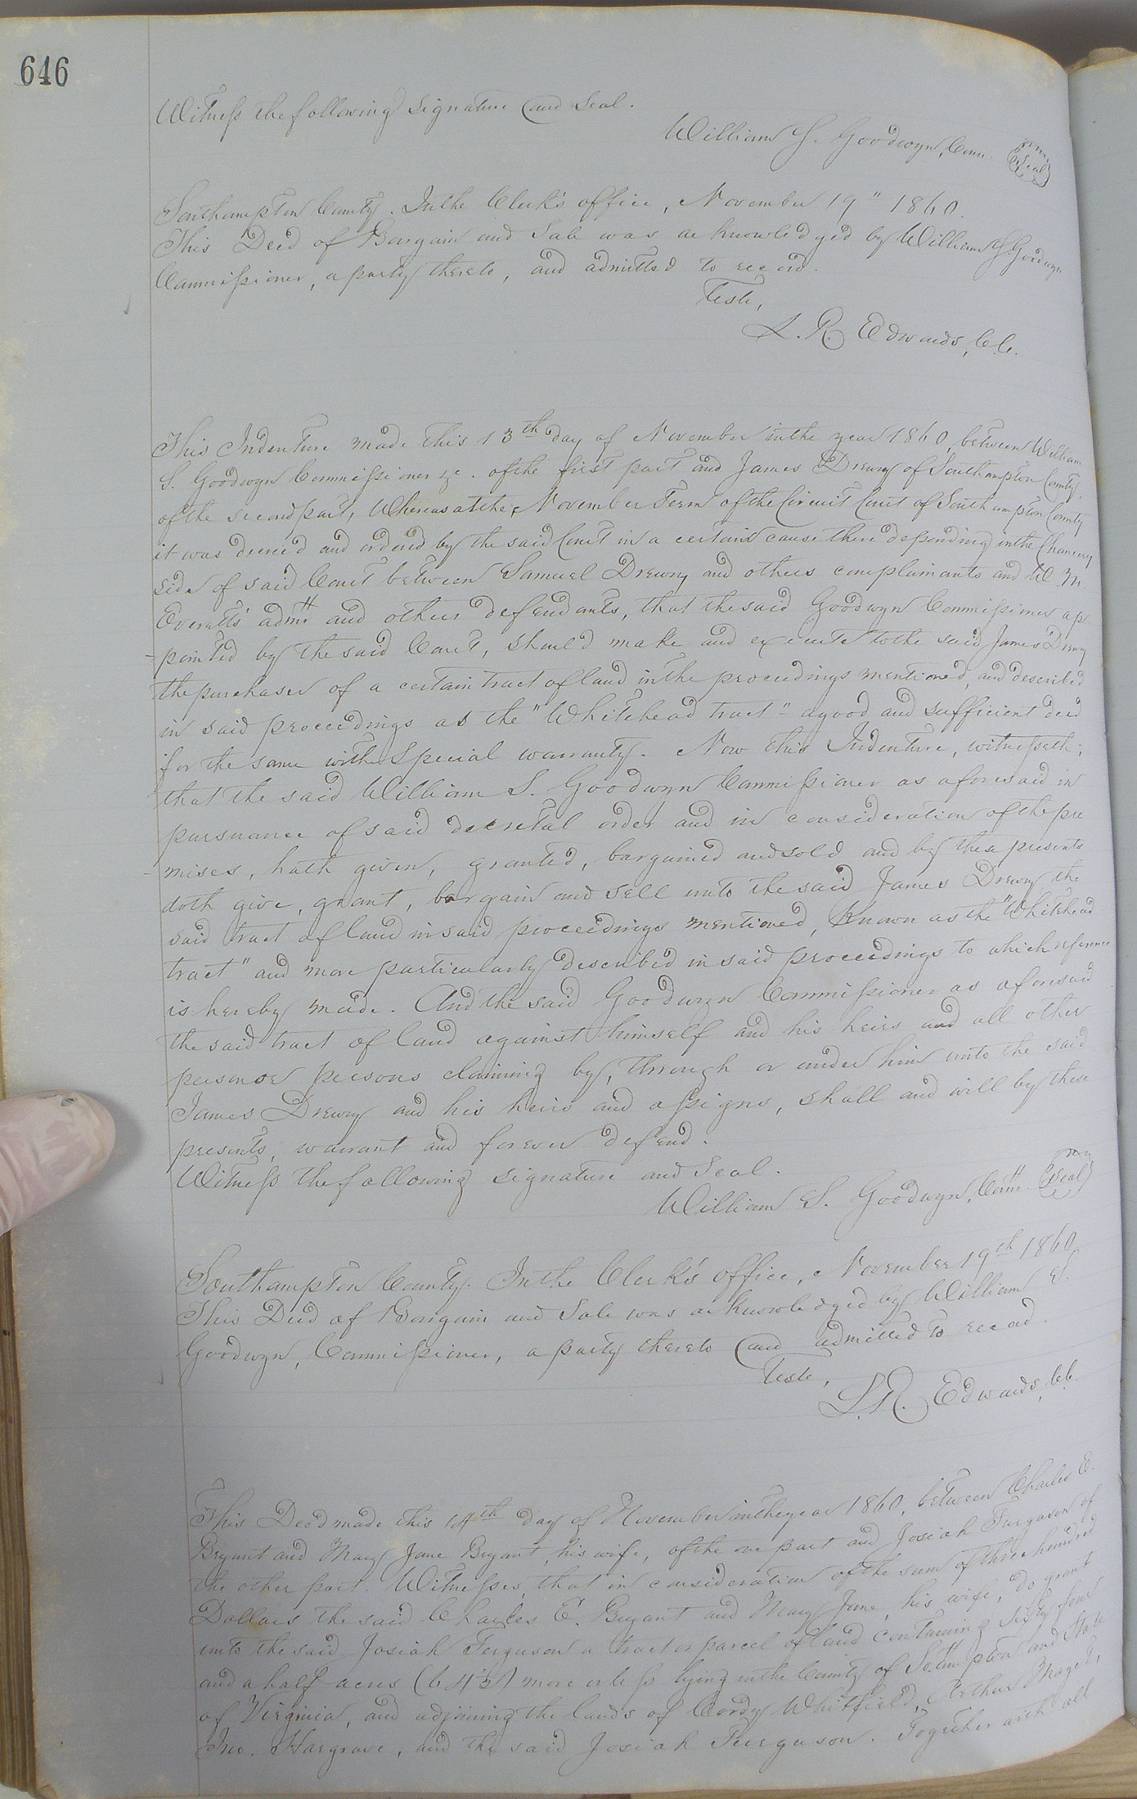 646
Witness the following signature and seal.
William S. Goodwyn, Com. Seal
Southampton County. In the Clerk's office, November 19" 1860.
This Deed of Bargain and Sale was acknowledged by William S Goodwyn
Commissioner, a party thereto, and admitted to record.
Teste,
L. R. Edwards, C.C.
This Indenture made this 13th day of November in the year 1860, between William
S. Goodwyn Commissioner &c. of the first part and James Drewry of Southampton County,
of the second part, Whereas at the November Term of the Circuit Court of Southampton County
it was decreed and ordered by the said Court in a certain cause there depending in the Chancery
side of said Court between Samuel Drewry and others complainants and W. M
Everetts admr and others defendants, that the said Goodwyn Commissioner ap-
pointed by the said Court, should make and execute to the said James Drewry
the purchaser of a certain tract of land in the proceedings mentioned, and described
in said proceedings as the "Whitehead tract" a good and sufficient deed
for the same with Special warranty. Now this Indenture, witnesseth;
that the said William S. Goodwyn Commissioner as aforesaid in
pursuance of said decretal order and in consideration of the pre
mises, hath given, granted, bargained and sold and by these presents
doth give, grant, bargain and sell unto the said James Drewry the
said tract of land in said proceedings mentioned, known as the "Whitehead
tract" and more particularly described in said proceedings to which reference
is hereby made. And the said Goodwyn Commissioner as aforesaid
the said tract of land against himself and his heirs and all other
person or persons claiming by, through or under him unto the said
James Drewry and his heirs and assigns, shall and will by these
presents, warrant and forever defend.
Witness the following signature and seal.
William S. Goodwyn, Com. Seal
Southampton County. In the Clerk's office, November 19th 1860.
This Deed of Bargain and Sale was acknowledged by William S.
Goodwyn, Commissioner, a party thereto and admitted to record.
Teste,
L. R. Edwards, C.C.
This Deed made this 14th day of November in the year 1860, between Charles E.
Bryant and Mary Jane Bryant, his wife, of the one part and Josiah Furguson of
the other part. Witnesses, that in consideration of the sum of three hundred
Dollars the said Charles E. Bryant and Mary Jane, his wife, do grant
unto the said Josiah Ferguson a tract or parcel of land containing sixty four
and a half acres (64½) more or less lying in the County of Southampton and State
of Virginia, and adjoining the lands of Cordy Whitfield, Arthur
Jno. Hargrave, and the said Josiah Furguson. Together with all